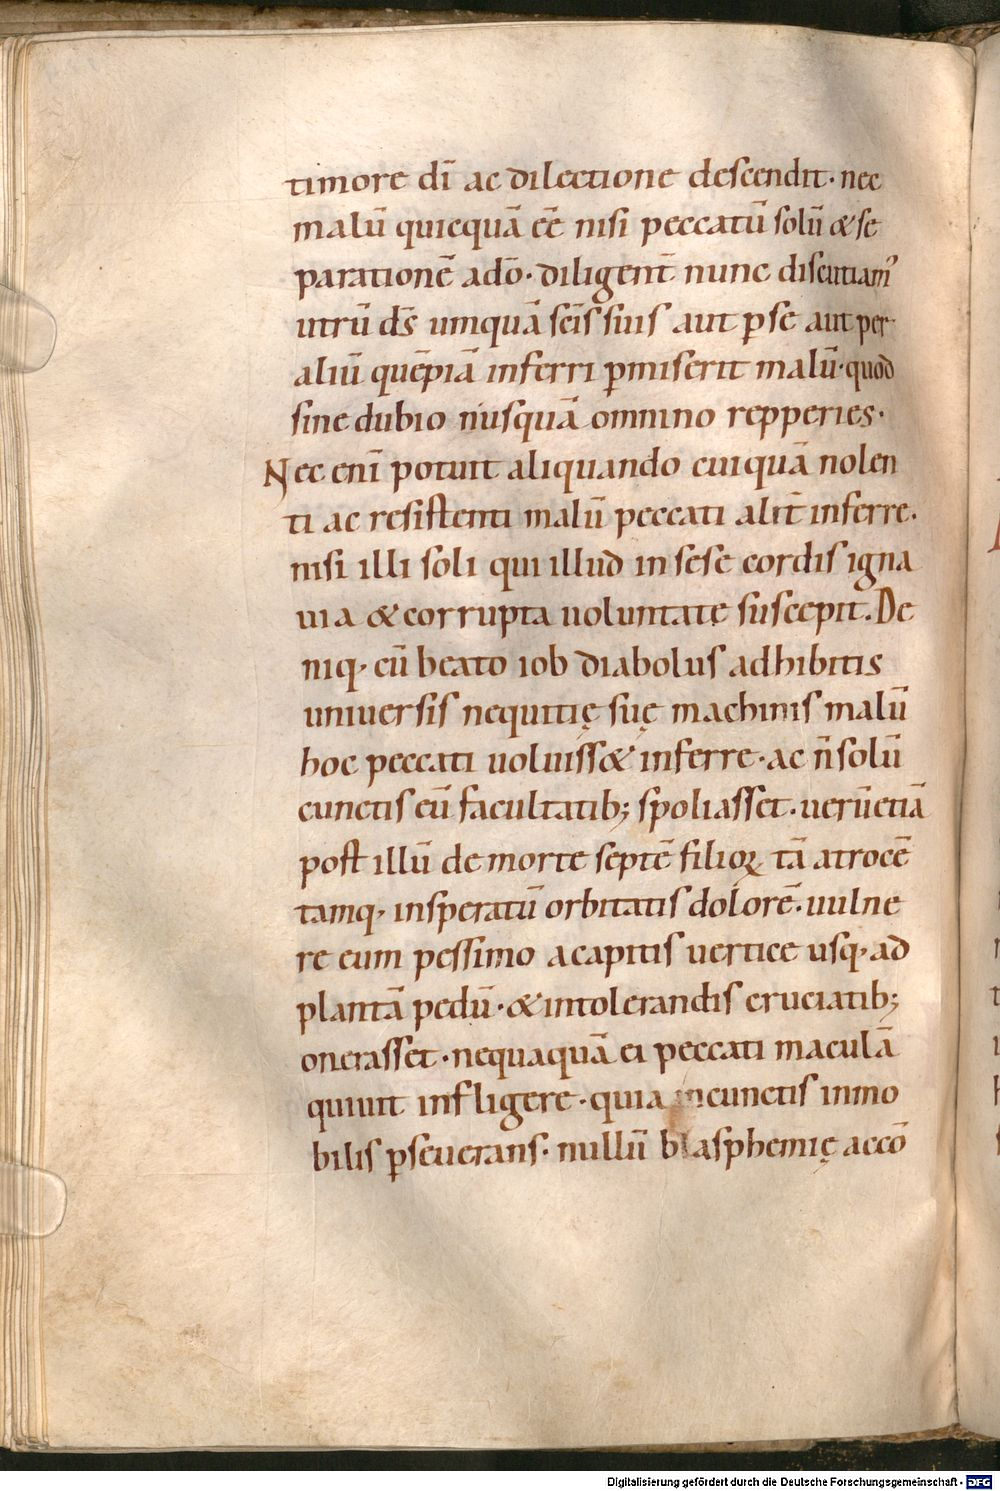 timore dī ac dilectione descendit· nec
malū quicquā eē nisi peccatū solū &se
parationē adō· diligent̄ nunc discutiam᾿
utrū ds̄ umquā scīs suis aut p̱se aut per
aliū quēpiā inferri p̱miserit malū· quod
sine dubio nusquā omnino repperies·
Nec enī potuit aliquando cuiquā nolen
ti ac resistenti malū peccati alit̄ inferre·
nisi illi soli qui illud in sese cordis igna
uia & corrupta uoluntatę suscepit. De
niq· cū beato iob diabolus adhibitis
uniuersis nequitię suę machinis malū
hoc peccati uoluiss& inferre· ac n̄ solū
cunctis eū facultatib; spoliasset· uerūetiā
post illū de morte septē filioꝝ tā atrocē
tamq· insperatū orbitatis dolorē· uulne
re eum pessimo a capitis uertice usq· ad
plantā pedū· & intolerandis cruciatib;
onerasset· nequaquā ei peccati maculā
quiuit infligere· quia in cunctis inmo
bilis p̱seuerans· nullū blasphemię accō
Digitalisierung gefördert durch die Deutsche Forschungsgemeinschaft - DFG